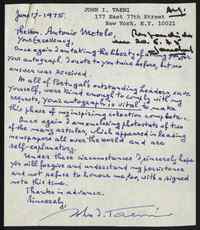 JOHN I. TAENI
177 EAST 77th STREET
NEW YORK, N.Y. 10021
June 17 - 1975
Once again I am taking the liberty of asking for
your autograph. I wrote to you twice before, but no
answer was received.
As all of Portugal's outstanding leaders have
yourself, were kind enough to comply with my
requests, your autograph is vital to
this phase of my inspiring collection complete.
Once again I am enclosing photostats of two
of the many articles, which appeared in leading
newspapers all over the world and are
self-explanatory.
Under these circumstances I sincerely hope
you will forgive and understand my persistence
and not refuse to honour me, for, with a signed
note this time.
Thanks in advance.
Sincerely,
John I. Taeni